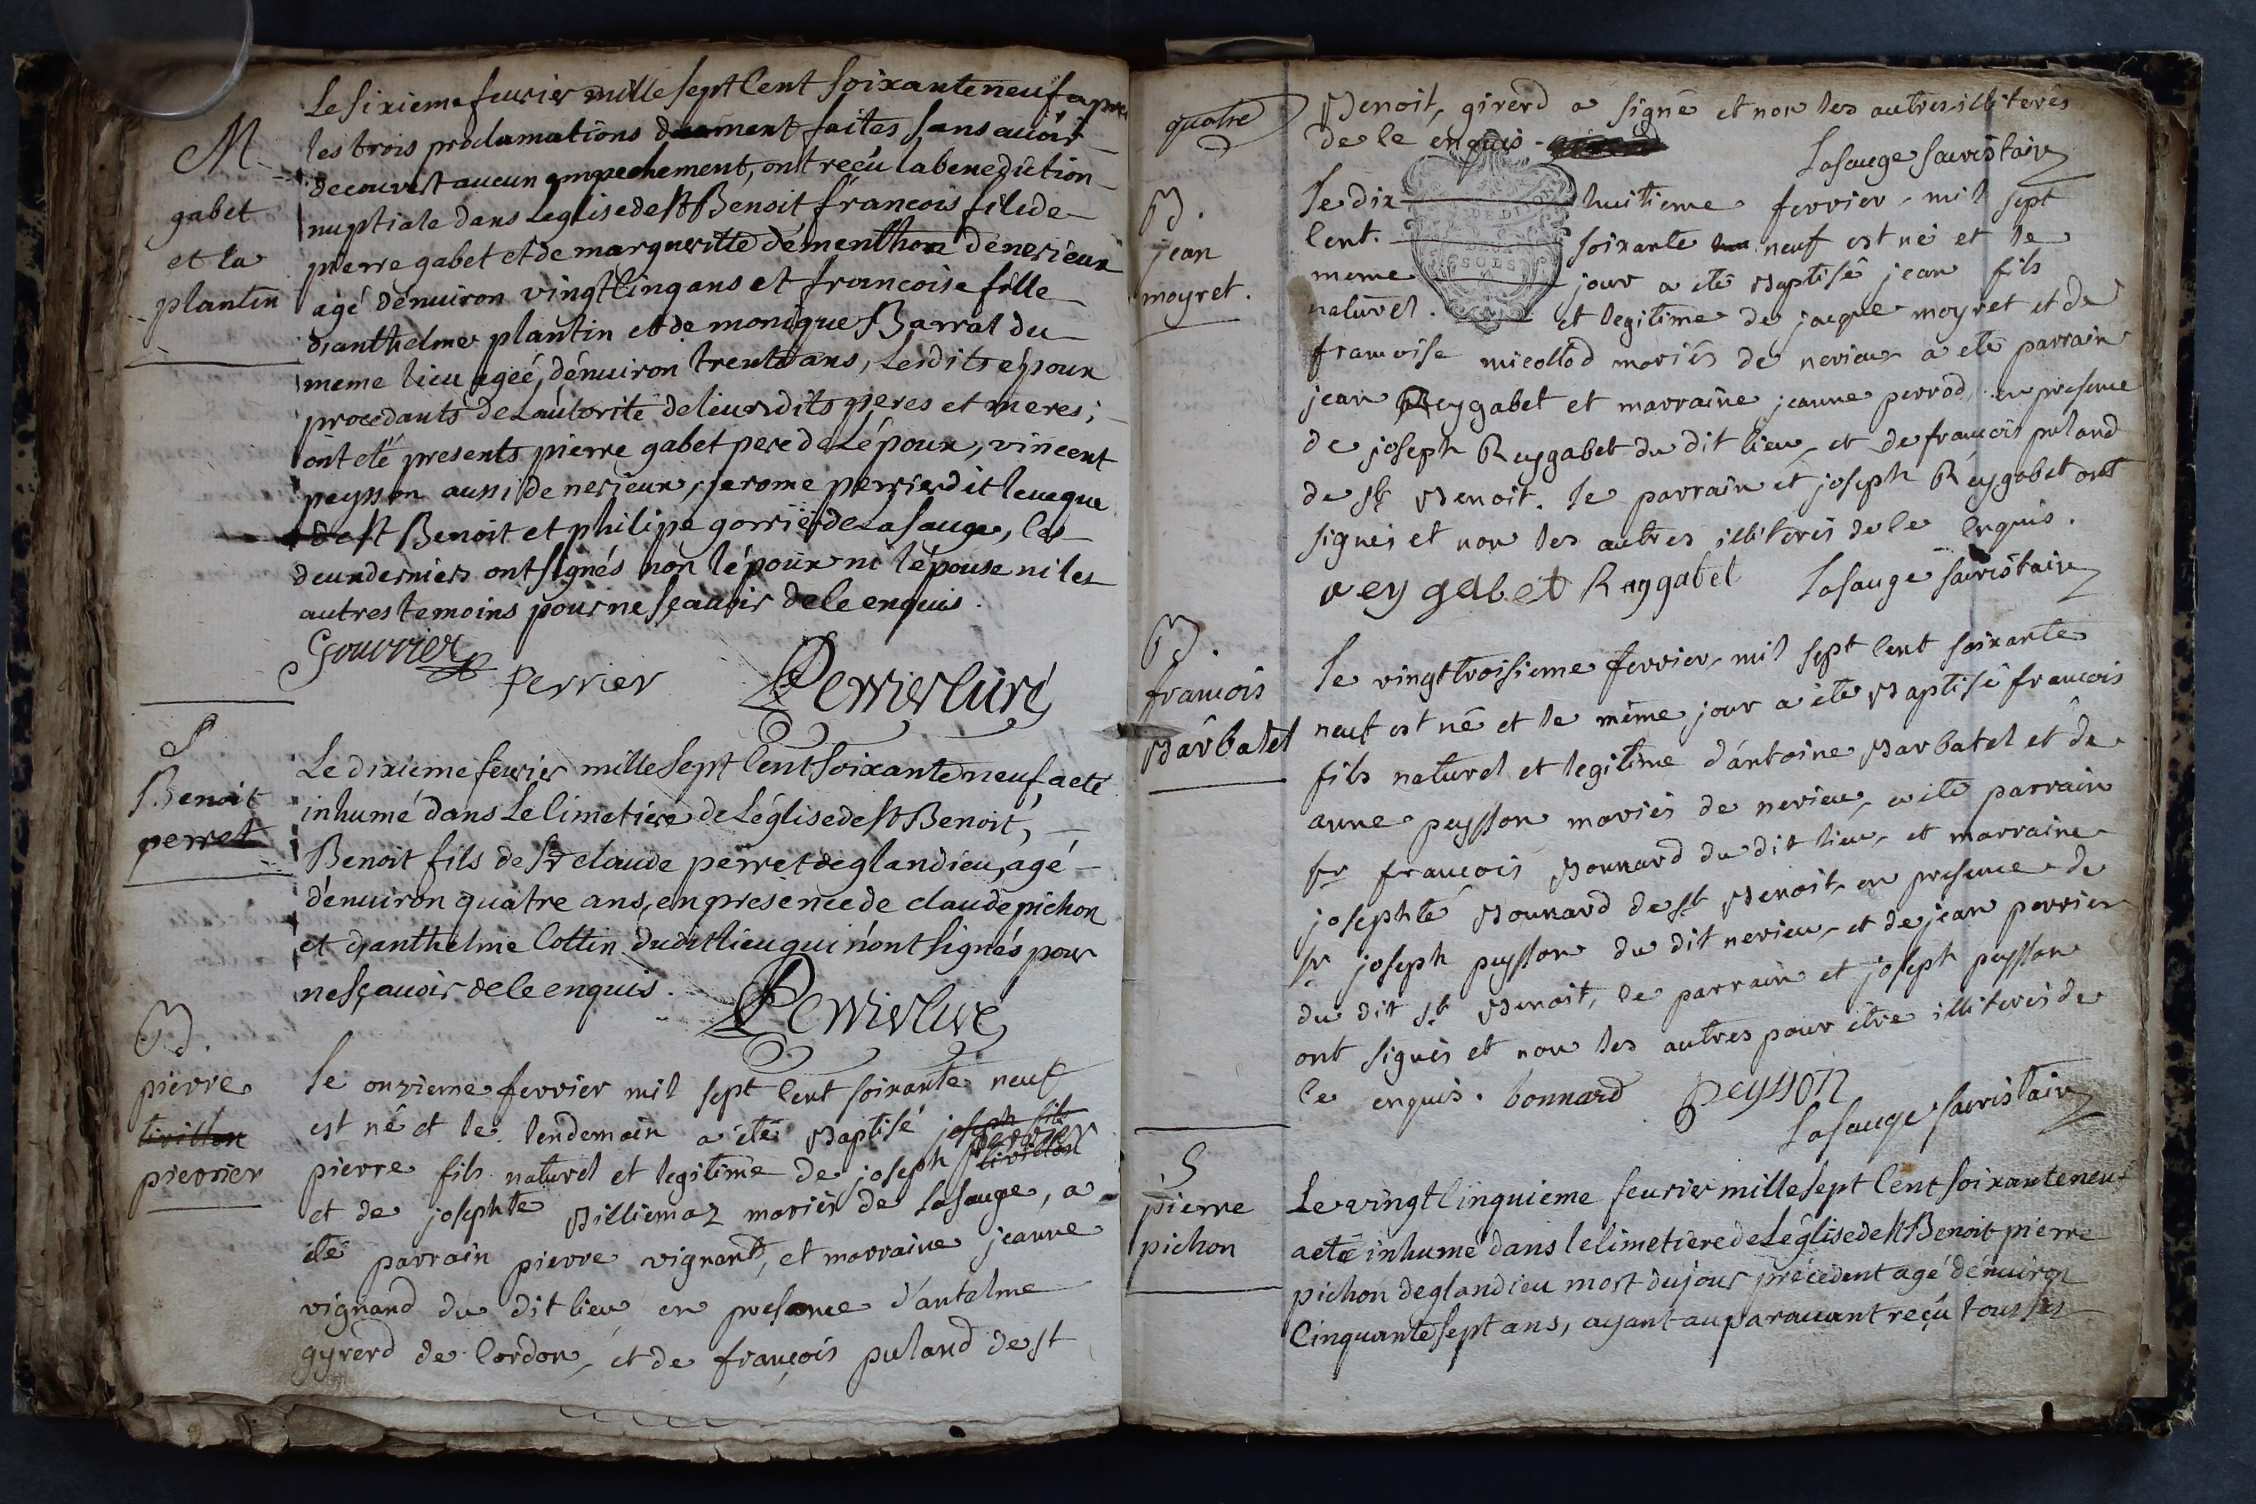 Le sixieme feurier mille sept Cent soixante neuf apres
M
les trois proclamations duement faites sans auoir
decouvert aucun empechement, ont reçû la benediction
gabet
nuptiale dans Leglise de st Benoit françois fils de
et la
pierre gabet et de margueritte dementhon de nerieux
plantin
agé d'enuiron vingt cinq ans et francoise fille
d'anthelme plantin et de monique Barral du
meme lieu ageé, d'enuiron trente ans, Lesdits époux
procedants de L'autorité de leursdits peres et meres;
ont été presents pierre gabet pere de L'époux, vincent
peysson aussi de nerieux, jerome perrier dit leueque
de st Benoit et philipe gorrier de Lasauge, les
deux derniers ont signés non l'époux ni l'épouse ni les
autres temoins pour ne sçauoir de ce enquis.
Gouvrier perrier Perrier Curé
S
Benoit
perret
Le dixieme feurier mille sept Cent soixante neuf a eté
inhumé dans Le Cimetiere de L'église de st Benoit,
Benoit fils de Sr claude perret de glandieu, agé
d'enuiron quatre ans, en presence de claude pichon
et d'anthelme Cottin dudit lieu qui n'ont signés pour
ne sçauoir de ce enquis. Perrier Curé
B.
pierre
tivillon
pierrier
Le onzieme fevrier mil sept Cent soixante neuf
est né et le lendemain a été Baptisé joseph fils
pierre fils naturel et legitime de joseph tivillon perrier
et de josephte Billiemaz mariés de Lasauge, a
été parrain pierre vignant, et marraine jeanne
vignand du dit lieu en presence d'antelme
gyrerd de Cordon, et de françois puland de st
quatre
Benoit, girerd a signé et non les autres illiterés
de ce enquis
Lasauge sacristain
B.
jean
moyret.
Le dix huitieme fevrier mil sept
Cent. soixante neuf est né et le
meme jour a été Baptisé jean fils
naturel. et legitime de jacque moyret et de
francoise micollod mariés de nerieu a été parrain
jean Reygabet et marraine jeanne perrod, en presence
de joseph Reygabet du dit lieu, et de françois puland
de st Benoit. le parrain et joseph Reygabet ont
signés et non les autres illiterés de ce enquis.
reygabet Reygabet Lasauge sacristain
B.
francois
Barbatel
Le vingt troisieme fevrier mil sept Cent soixante
neuf est né et le même jour a été Baptisé francois
fils naturel et legitime d'antoine Barbatel et de
anne peysson mariés de nerieu, a été parrain
sr françois Bonnard du dit lieu, et marraine
josephte Bonnard de st Benoit, en presence de
sr joseph peysson du dit nerieu, et de jean perrier
du dit st Benoit, le parrain et joseph peysson
ont signés et non les autres pour être illiterés de
ce enquis. bonnard peysson
Lasauge sacristain
S
pierre
pichon
Le vingt Cinquieme feurier mille sept Cent soixante neuf
a eté inhumé dans le Cimetiere de L'église de st Benoit pierre
pichon de glandieu mort du jour précedent agé d'enuiron
Cinquante sept ans, ayant auparauant reçû tous ses